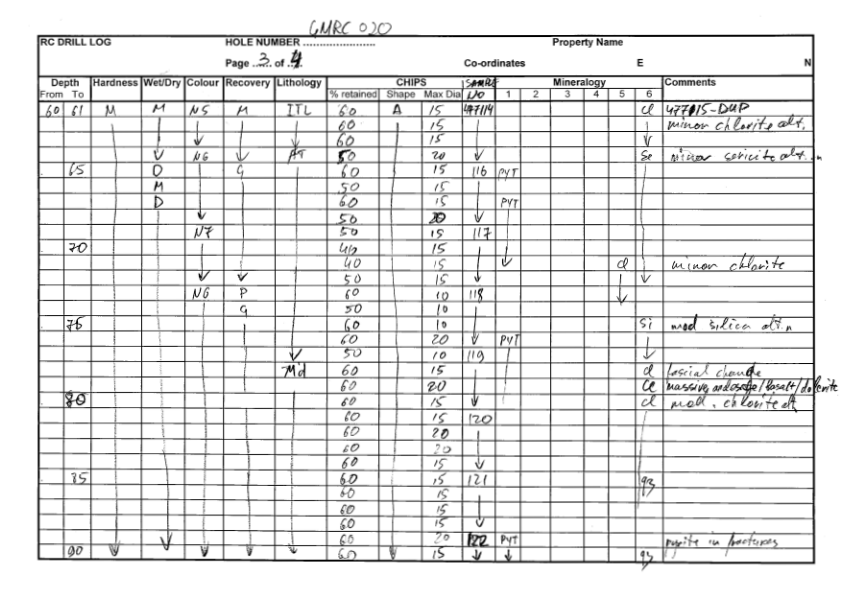 GMRC 020
RC DRILL LOG HOLE NUMBER ........................ Property Name
Page ..3.. of .4. Co-ordinates E N
Depth Hardness Wet/Dry Colour Recovery Lithology CHIPS SAMPLE Mineralogy Comments
From To % retained Shape Max Dia NO 1 2 3 4 5 6
60 61 M M N5 M ITL 60 A 15 477114 cl 477115-DUP
60 15 minor chlorite alt.
60 15
N6 AT 50 20 Se minor sericite alt.n
65 D G 60 15 116 PYT
M 50 15
D 60 15 PYT
50 20
N7 50 15 117
70 40 15
40 15 cl minor chlorite
50 15
N6 P 60 10 118
G 50 10
75 60 10 Si mod silica alt.n
60 20 PYT
50 10 119
Md 60 15 cl fascial change
60 20 Ce massive, andosite/basalt/dolerite
80 60 15 cl mod. chlorite alt
60 15 120
60 20
60 20
60 15
85 60 15 121 qz
60 15
60 15
60 15
60 20 122 PYT pyrite in fractures
90 60 15 qz